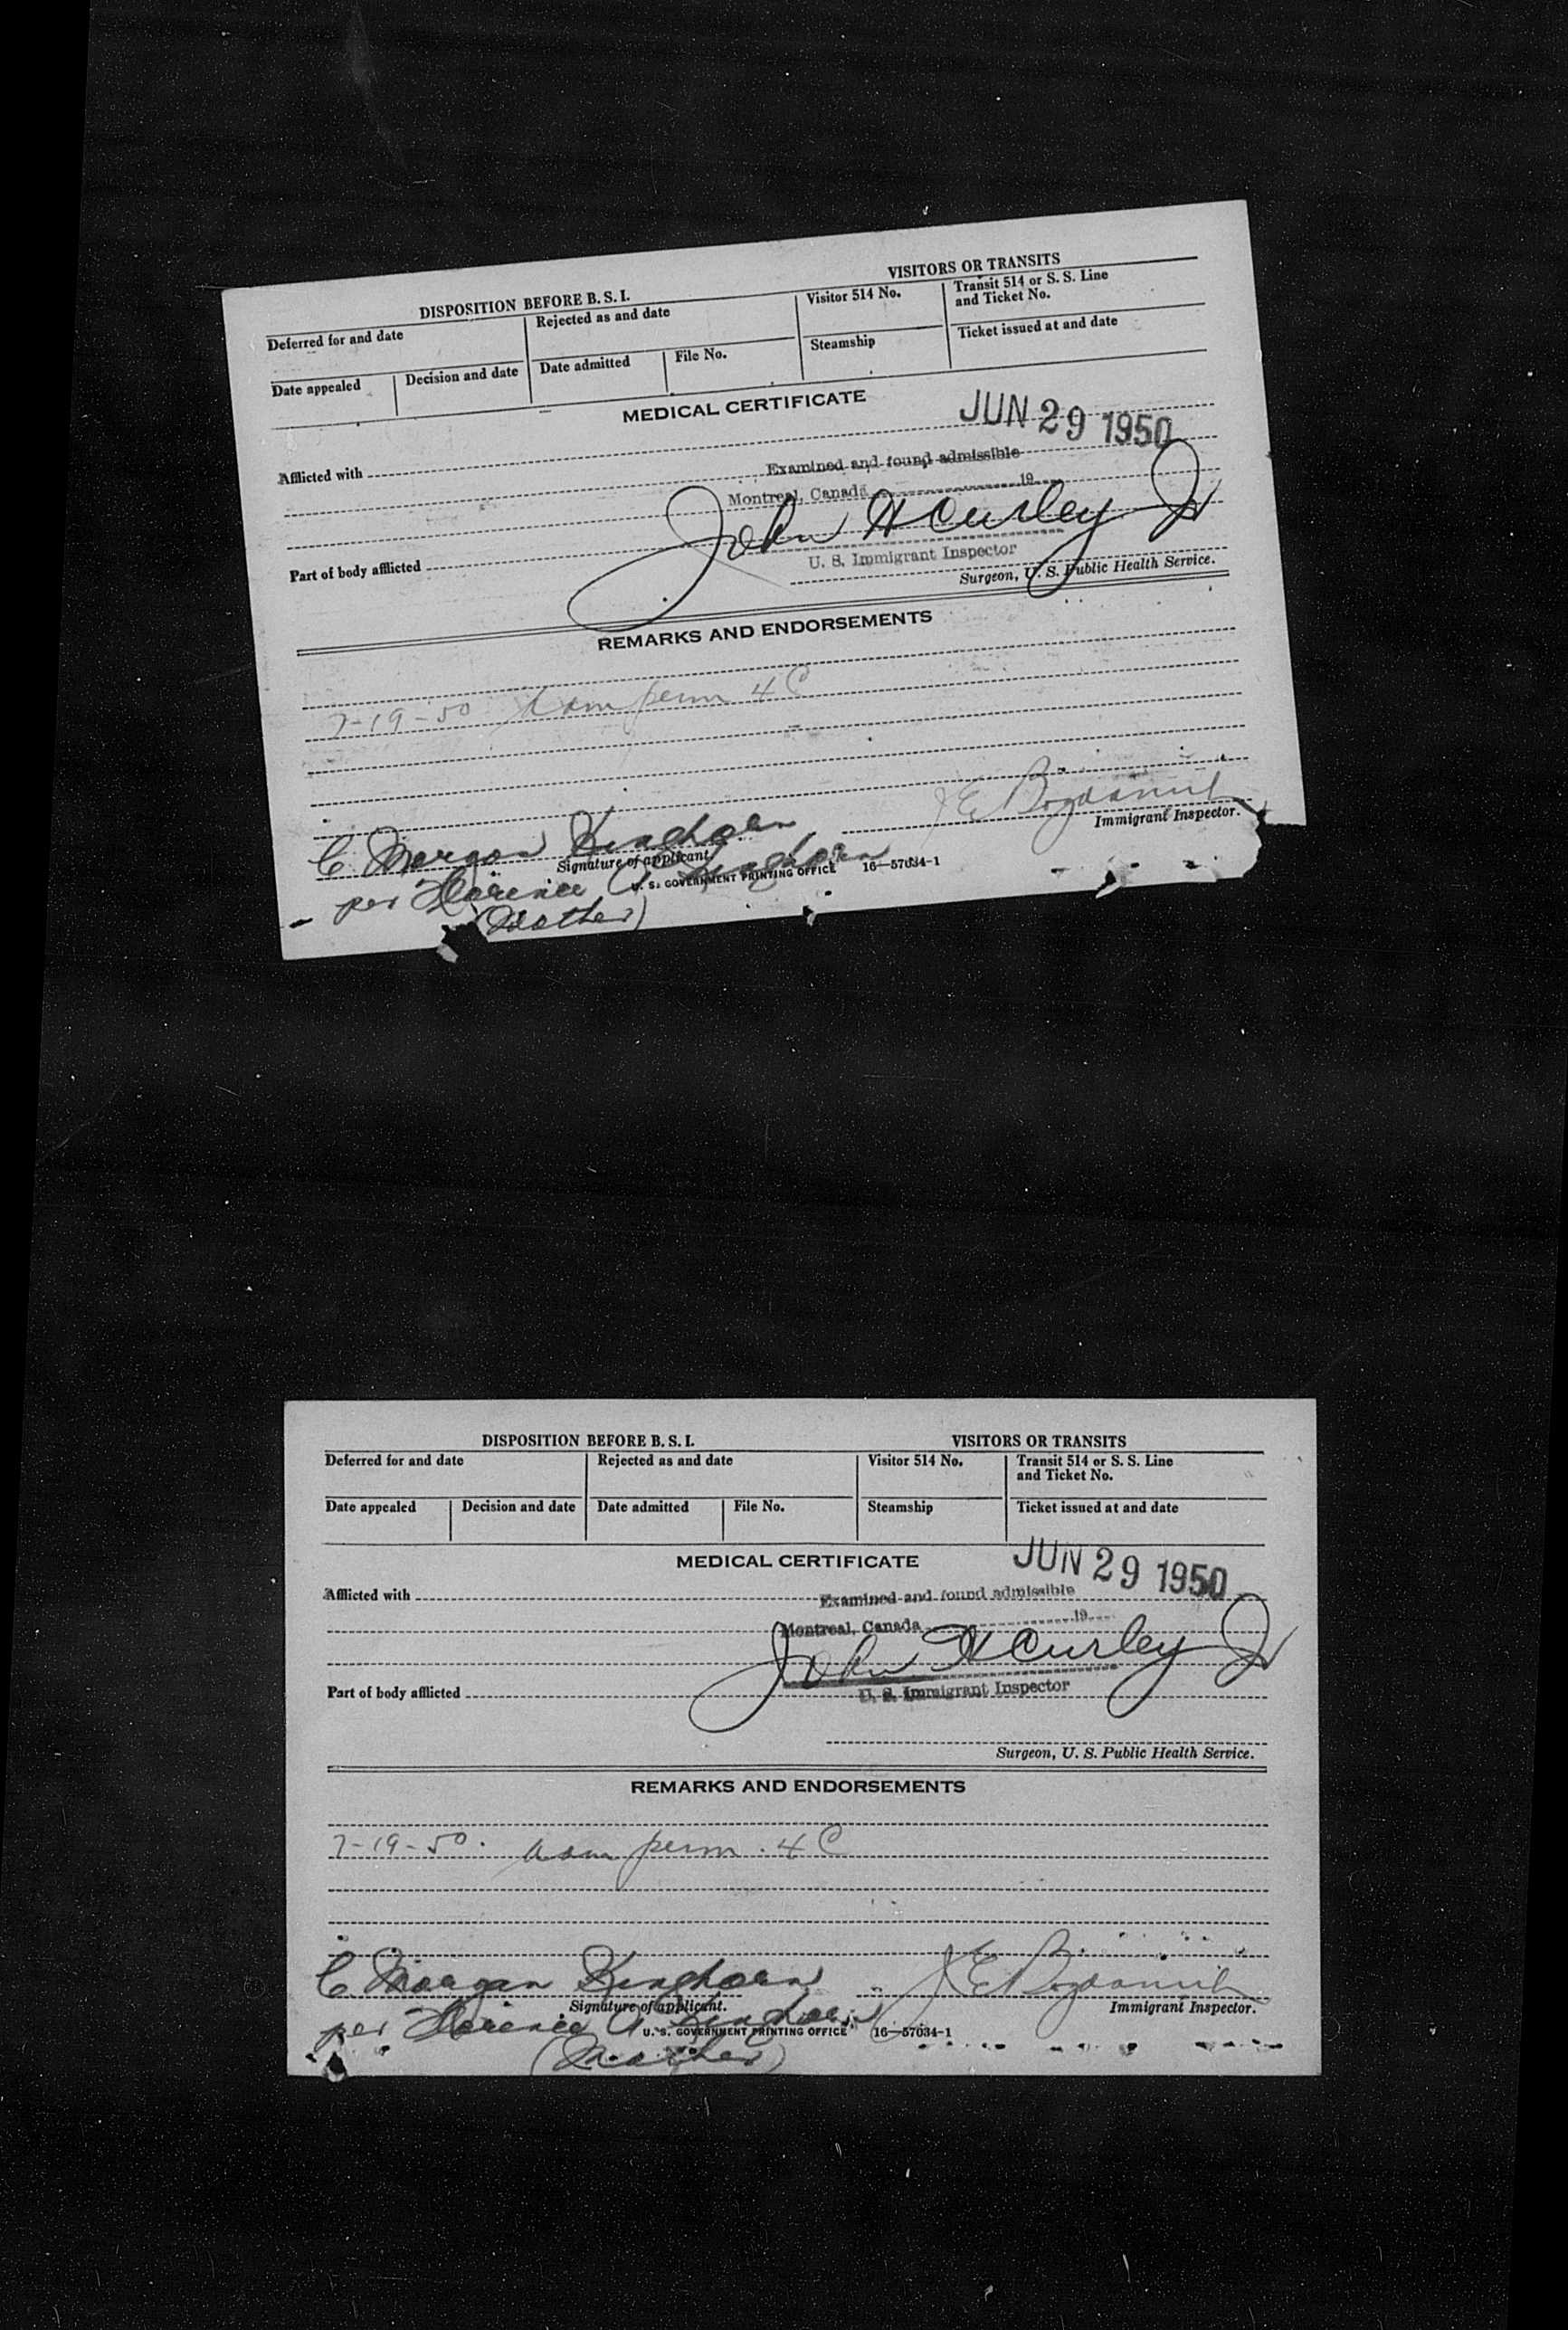 DISPOSITION BEFORE B. S. I.
VISITORS OR TRANSITS
Deferred for and date
Rejected as and date
Visitor 514 No.
Transit 514 or S. S. Line
and Ticket No.
Date appealed
Decision and date
Date admitted
File No.
Steamship
Ticket issued at and date
MEDICAL CERTIFICATE
JUN 29 1950
Afflicted with
Examined and found admissible
Montreal, Canada 19
John H Curley Jr
Part of body afflicted
U. S. Immigrant Inspector
Surgeon, U. S. Public Health Service.
REMARKS AND ENDORSEMENTS
7-19-50 adm perm 4C
C Morgan Kinghorn
Signature of applicant.
Immigrant Inspector.
per Florence A Kinghorn
U. S. GOVERNMENT PRINTING OFFICE 16—57034-1
(Mother)
DISPOSITION BEFORE B. S. I.
VISITORS OR TRANSITS
Deferred for and date
Rejected as and date
Visitor 514 No.
Transit 514 or S. S. Line
and Ticket No.
Date appealed
Decision and date
Date admitted
File No.
Steamship
Ticket issued at and date
MEDICAL CERTIFICATE
JUN 29 1950
Afflicted with
Examined and found admissible
Montreal, Canada 19
John H Curley Jr
Part of body afflicted
U. S. Immigrant Inspector
Surgeon, U. S. Public Health Service.
REMARKS AND ENDORSEMENTS
7-19-50. adm perm. 4C
C Morgan Kinghorn
Signature of applicant.
Immigrant Inspector.
per Florence A Kinghorn
U. S. GOVERNMENT PRINTING OFFICE 16—57034-1
(Mother)